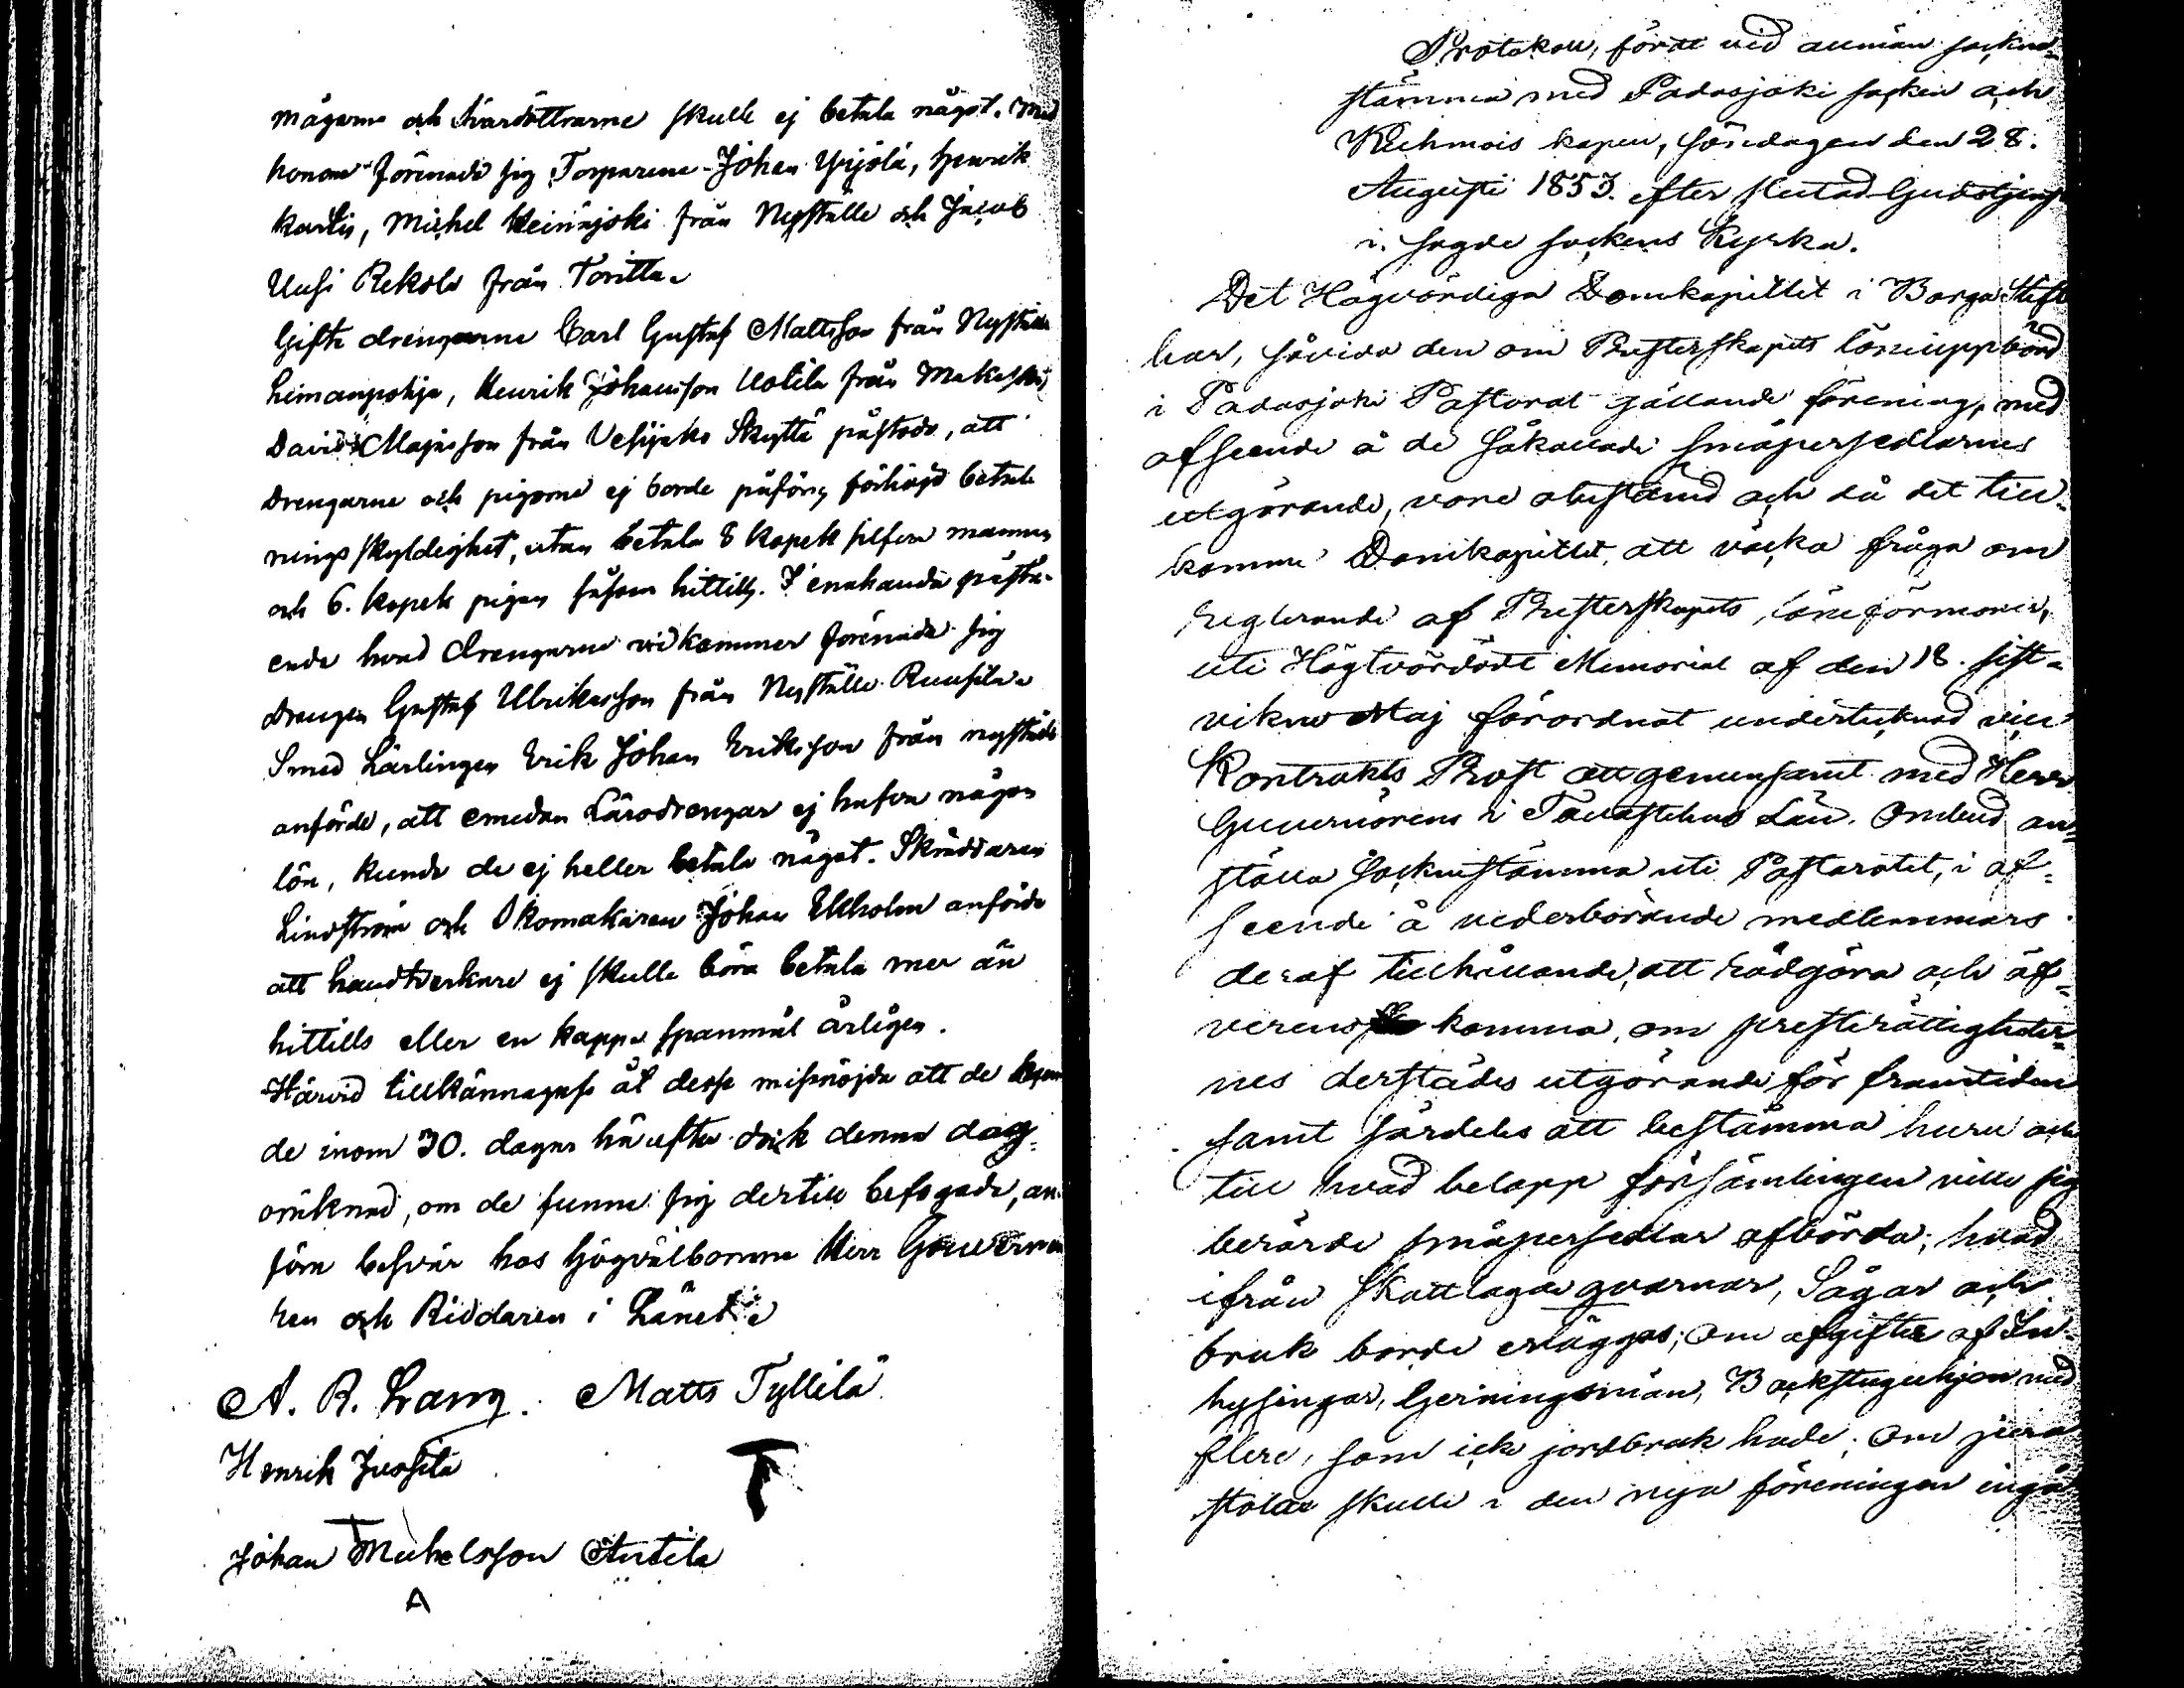 mågarne och Svärdöttrarne skulle ej betala något. Med
honom förenade sig Torparene Johan Yrjölä, Henrik
Kartis, Michel Heinäjoki från Nyställe och Jacob
Uusi Rekola från Toritta
Gifte drengarne Carl Gustaf Mattsson från Nyställe
Leimanpohja, Henrik Johansson Uotila från
David Majasson från Vesijako Skyttä påstodo, att
Drengarne och pigorne ej borde påföras förhöjd betal-
nings skyldighet, utan betala 8 kopek silfver mannen
och 6. kopek pigan såsom hittills. I enahanda påstå-
ende hvad drengarne vidkommer förenade sig
drengen Gustaf Ulriksson från Nyställe Ruusila
Smed Lärlingen Erik Johan Eriksson från nyställe
anförde, att emedan Lärodrengar ej hafva någon
lön, kunde de ej heller betala något. Skräddaren
Lindström och Skomakaren Johan Ekholm anförde
att handtverkare ej skulle böra betala mer än
hittills eller en kappe spanmål årligen.
Härvid tillkännagafs åt desse missnöjde att de
de inom 30. dagar härefter dock denna dag
oräknad, om de funne sig dertill befogade, an-
föra besvär hos Högvälborne Herr Gouvernö
ren och Riddaren i Länet
A. R. Lang. Matts Tyllilä
Henrik Jussila
Johan Michelsson Anttila
A
Protokoll, fördt vid allmän sockne-
stämma med Padasjoki socken och
Kuhmois kapell, söndagen den 28.
Augusti 1853. efter slutad Gudstjenst
i sagde sockens Kyrka.
Det Högvördiga Domkapitlet i Borgå Stift
har, såvida den om Presterskapets löneuppbörd
i Padasjoki Pastorat gällande förening, med
afseende å de såkallade småpersedlarnes
utgörande, vore obestämd och då det till-
komme Domkapitlet, att väcka fråga om
reglerande af Presterskapets löneförmoner,
uti Högtvördadt Memorial af den 18. sist-
vikne Maj förordnat undertecknad vice
Kontrakts Prost att gemensamt med Herr
Guvernörens i Tavastehus Län. Ombud an-
ställa Socknestämma uti Pastoratet, i af-
seende å vederbörande medlemmars
deraf tillhållande, att rådgöra och öf-
verens komma, om presterättigheter-
nes derstädes utgörande för framtiden
samt särdeles att bestämma huru och
till hvad belopp församlingen ville sig
berörde småpersedlar afbörda; hvad
ifrån Skattlagda qvarnar, Sågar och
bruk borde erläggas; om afgifter af In-
hysingar, Gerningsmän, Backstuguhjon med
flere, som icke jordbruk hade; om jura
stolae skulle i den nya föreningen ingå